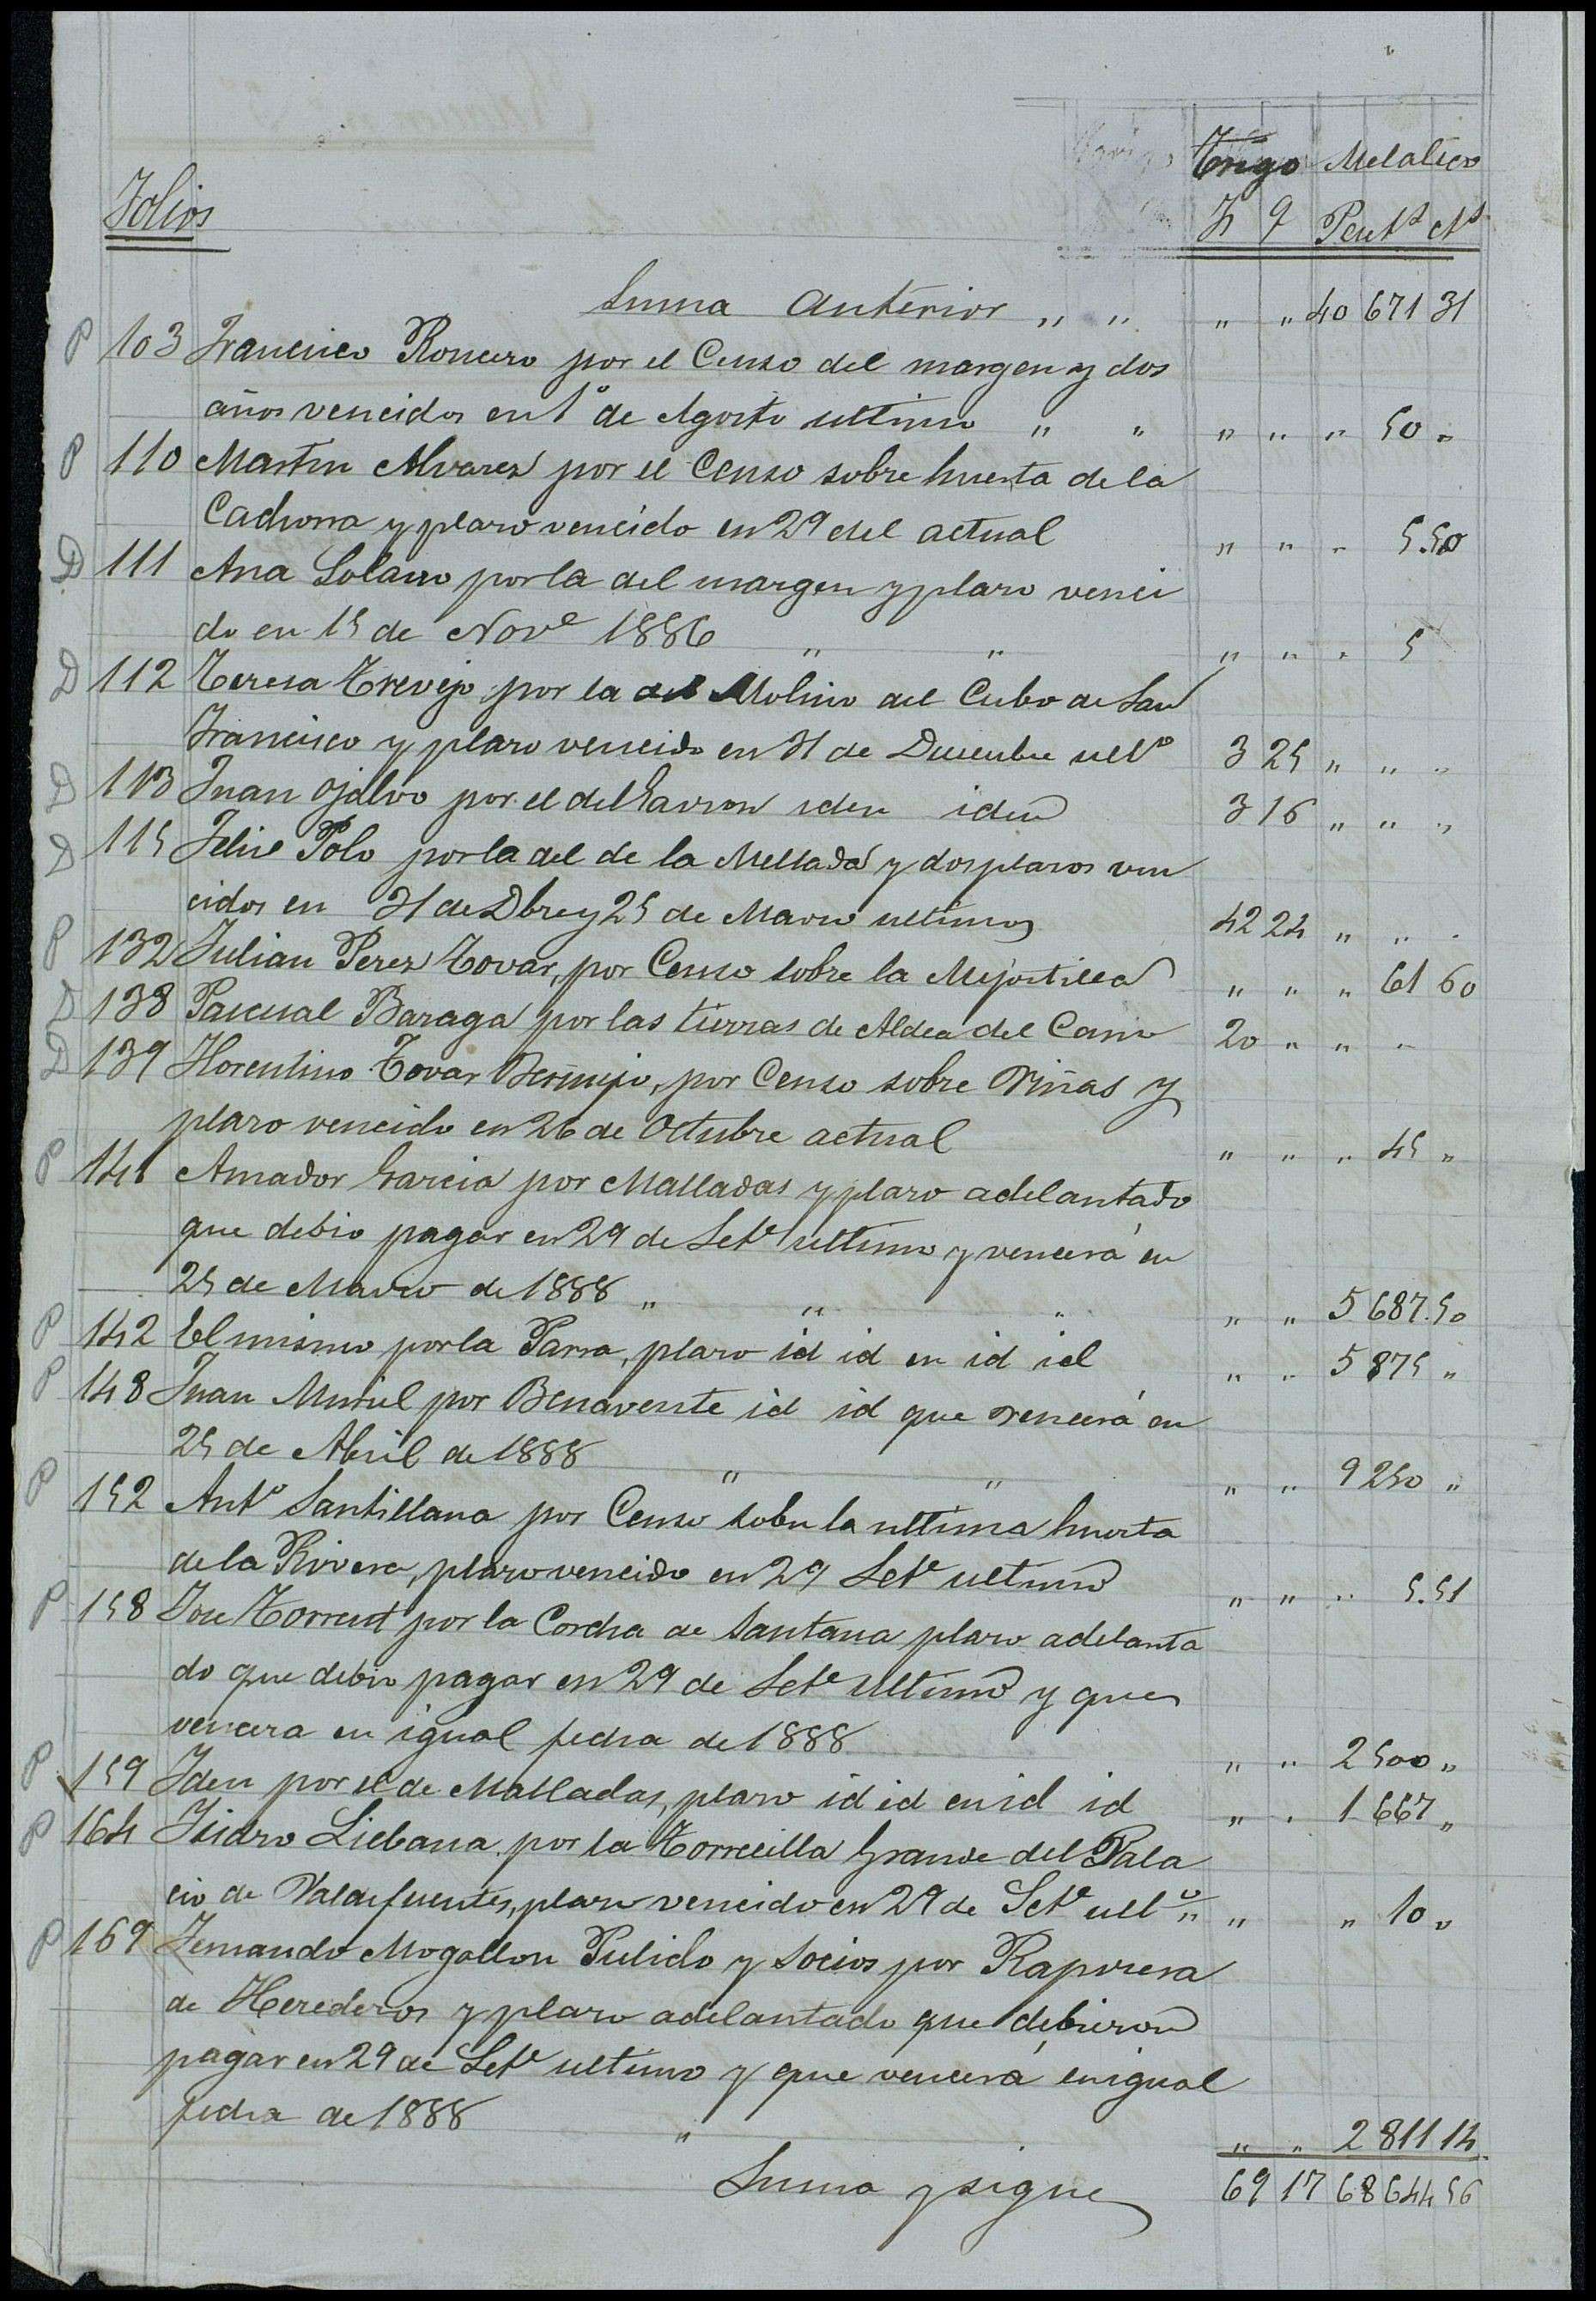 Trigo Metalico
Folios F q Pent.s ct.s
Suma anterior " " " " 40 671 31
P 103 Francisco Roncero por el Censo del margen y dos
años vencidos en 1º de Agosto ultimo " " " " " 50 "
P 110 Martin Alvarez por el Censo sobre huerta de la
Cachorra y plazo vencido en 29 del actual " " " 5.50
D 111 Ana Solano por la del margen y plazo venci
do en 15 de Nov.e 1886 " " " " " 5
D 112 Teresa Trevejo por la del Molino del Cubo de San
Francisco y plazo vencido en 31 de Diciembre ult.o 3 25 " " "
D 113 Juan Ojalvo por el del Garron iden iden 3 16 " " "
D 115 Felipe Polo por la del de la Mellada y dos plazos ven
cidos en 31 de Dbre y 25 de Marzo ultimos 42 24 " " "
P 132 Julian Perez Tovar, por Censo sobre la Mejostilla " " " 61 60
D 138 Pascual Baraga por las tierras de Aldea del Cano 20 " " "
D 139 Florentino Tovar Bermejo, por Censo sobre Viñas y
plazo vencido en 26 de Octubre actual " " " 45 "
P 141 Amador Garcia por Malladas y plazo adelantado
que debio pagar en 29 de Set.e ultimo y vencerá en
25 de Marzo de 1888 " " " " " 5 687.50
P 142 El mismo por la Parra, plazo id id en id id " " 5 875 "
P 148 Juan Muriel por Benavente id id que vencerá en
25 de Abril de 1888 " " " " 9 250 "
P 152 Ant.o Santillana por Censo sobre la ultima huerta
de la Rivera, plazo vencido en 29 Set.e ultimo " " " 5.51
P 158 Jose Torrent por la Corcha de Santana plazo adelanta
do que debio pagar en 29 de Set.e ultimo y que
vencera en igual fecha de 1888 " " 2 500 "
P 159 Iden por el de Malladas, plazo id id en id id " " 1 667 "
P 164 Isidro Liebana por la Torrecilla Grande del Pala
cio de Valdefuentes, plazo vencido en 29 de Set.e ult.o " " " 10 "
P 169 Fernando Mogollon Pulido y Socios por Raposera
de Herederos y plazo adelantado que debieron
pagar en 29 de Set.e ultimo y que vencerá en igual
fecha de 1888 " " " 2 811 14
Suma y sigue 69 17 68 644 56